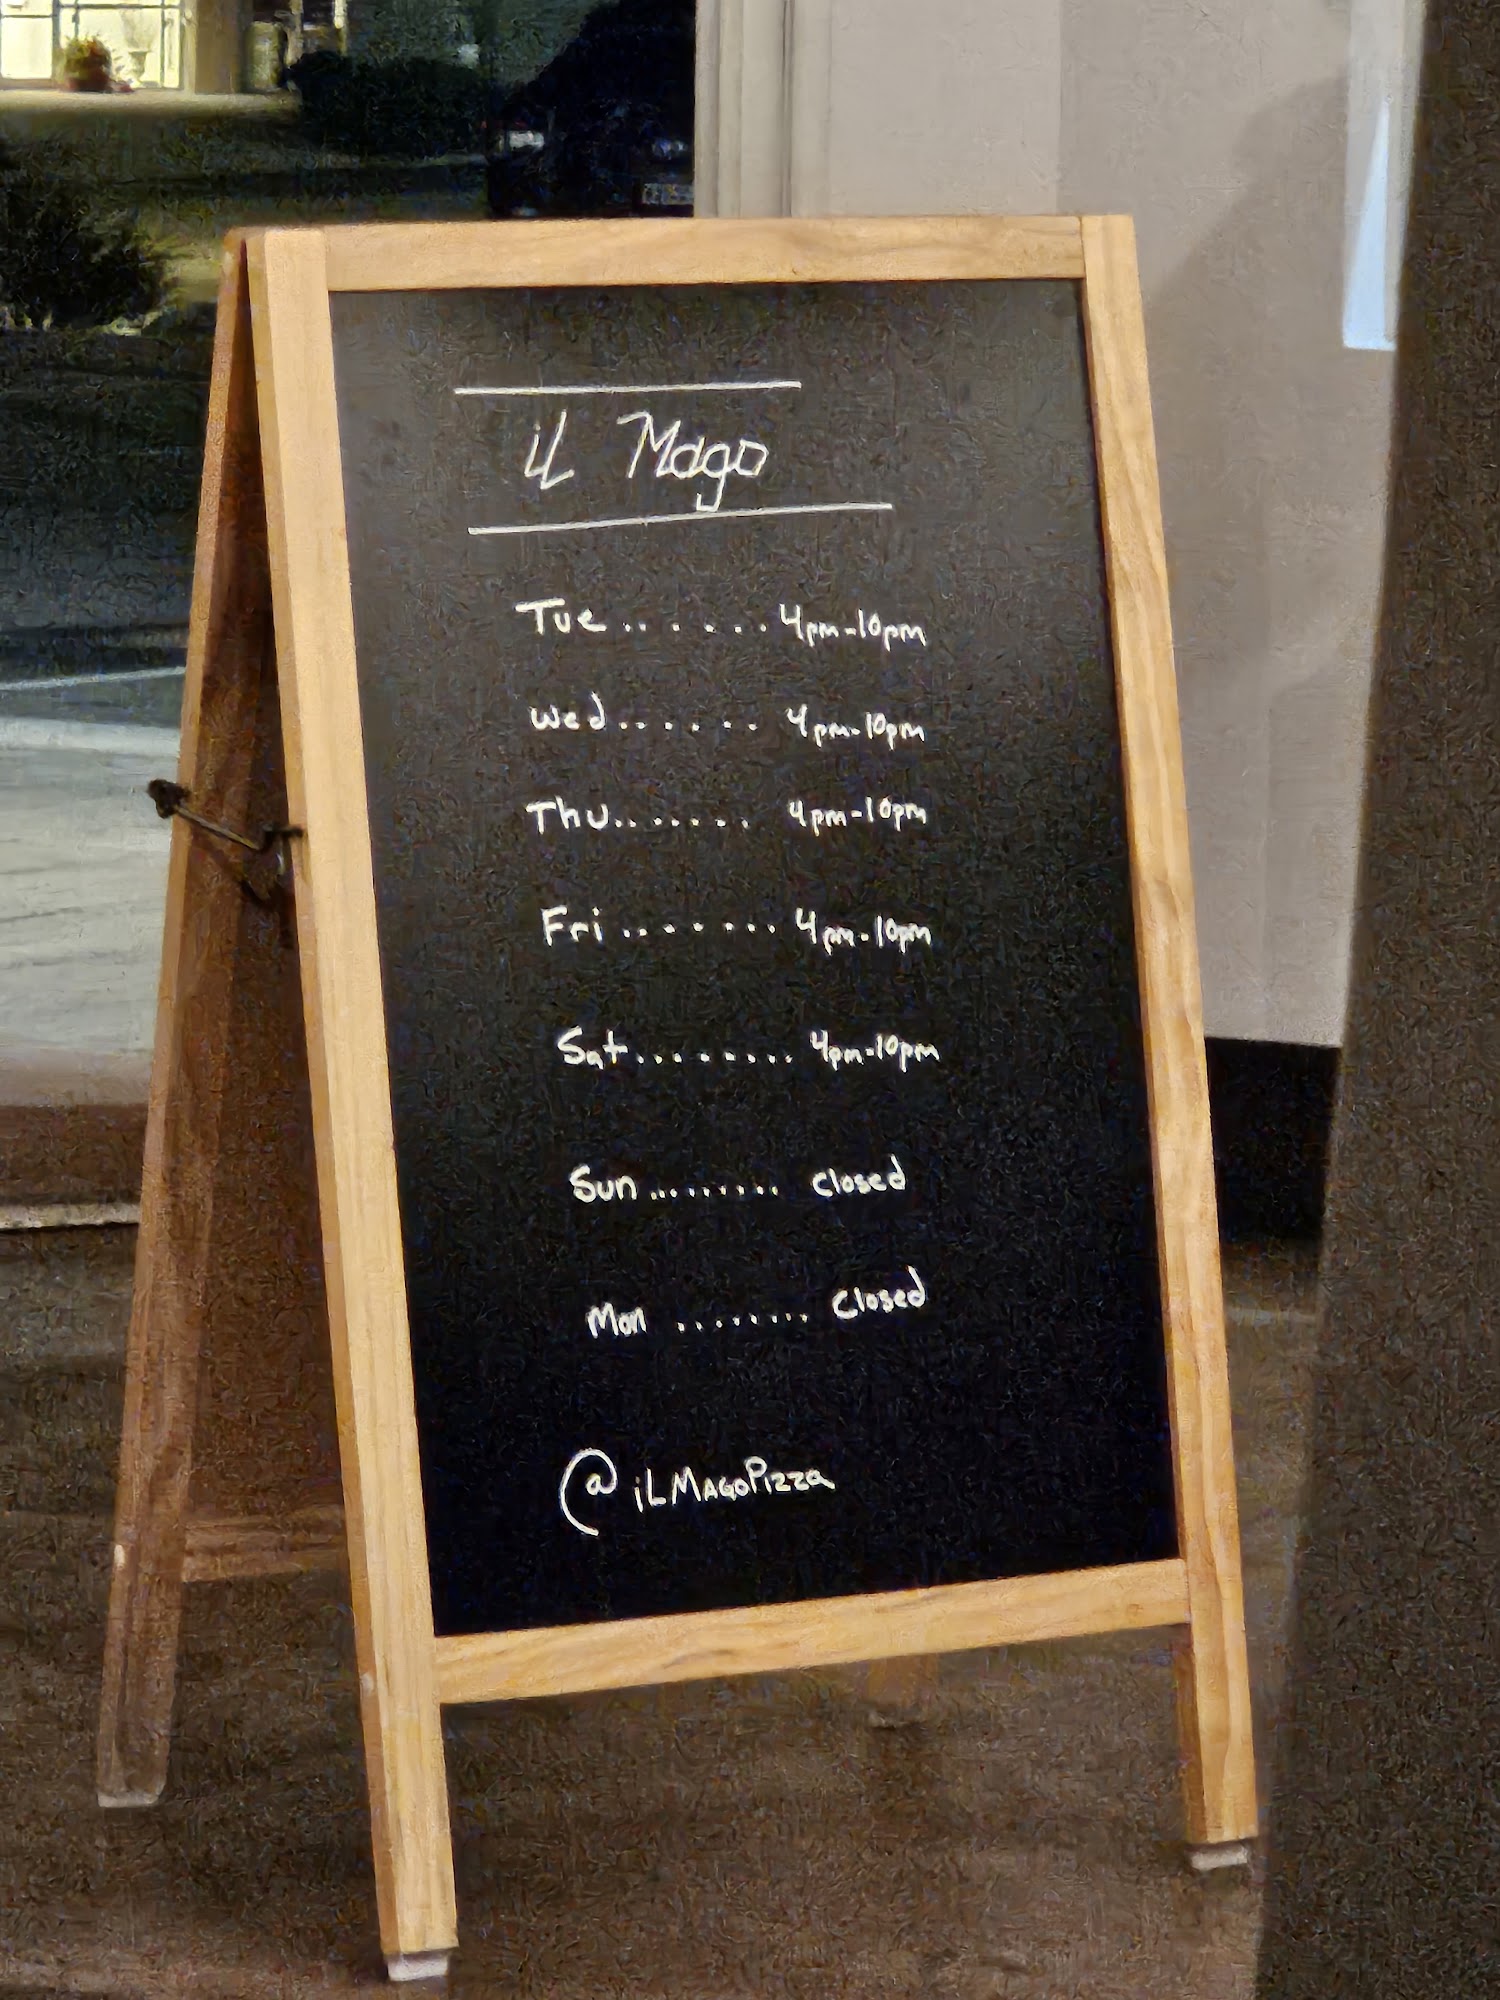 iL Mago
Tue....... 4pm-10pm
Wed....... 4pm-10pm
Thu....... 4pm-10pm
Fri ....... 4pm-10pm
Sat......... 4pm-10pm
Sun ......... closed
Mon ......... closed
@iLMAGoPizza